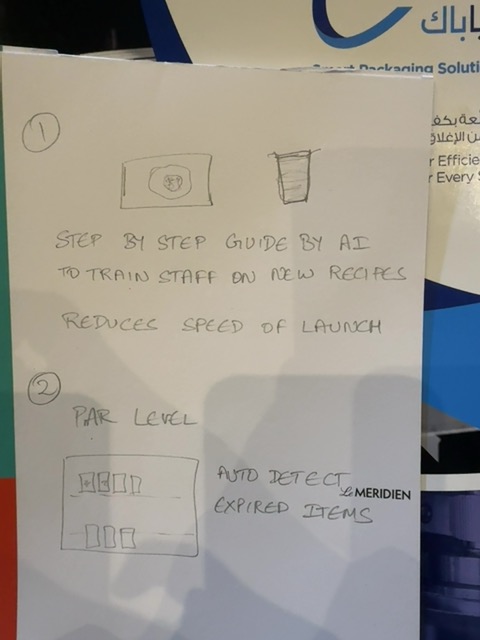 باك
Smart Packaging Soluti
1
r Efficie
r Every S
STEP BY STEP GUIDE BY AI
TO TRAIN STAFF ON NEW RECIPES
REDUCES SPEED OF LAUNCH
2
PAR LEVEL
AUTO DETECT
Le MERIDIEN
EXPIRED ITEMS